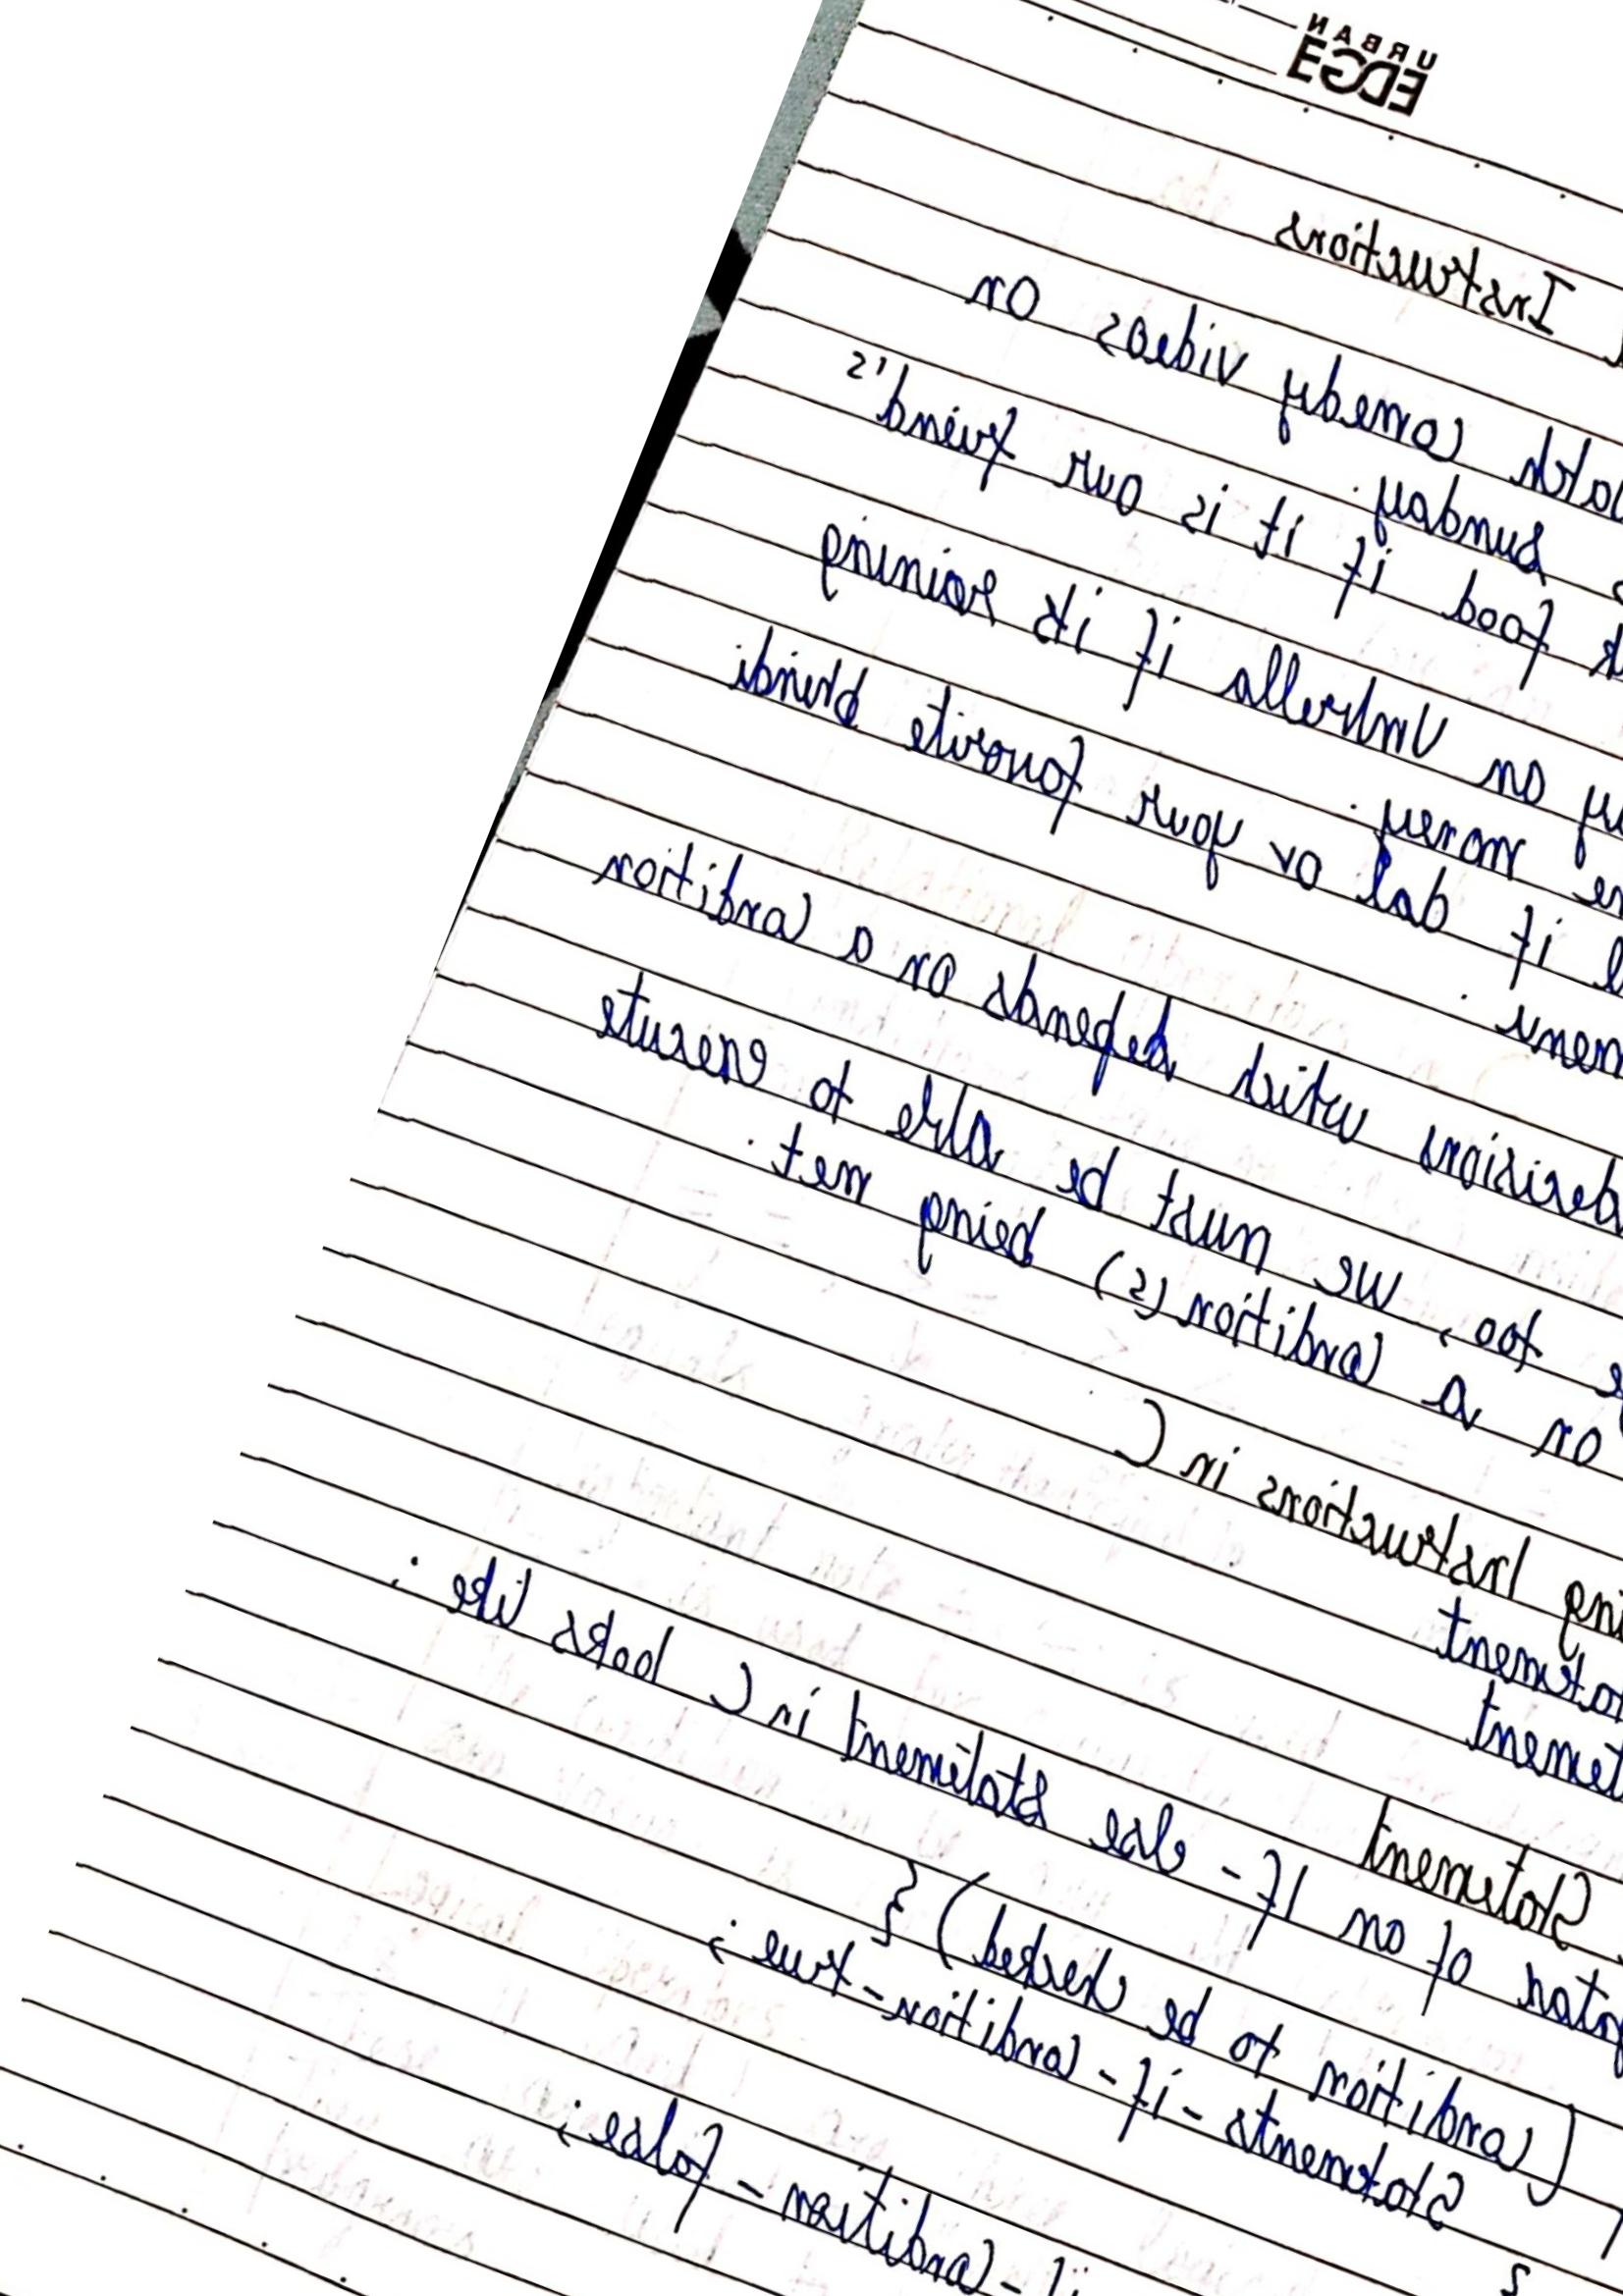 URBAN
EDGE
Instructions
comedy videos on
sunday.
food if it is our friend's
an Umbrella if its raining
money.
if dal or your favorite bhindi
menu.
decisions which depends on a Condition
too, we must be able to execute
on a Condition(s) being met.
Instructions in C
Statement
of an If- else statement in C looks like :
(Condition to be checked) {
Statements - if - Condition - true ;
Condition - false ;